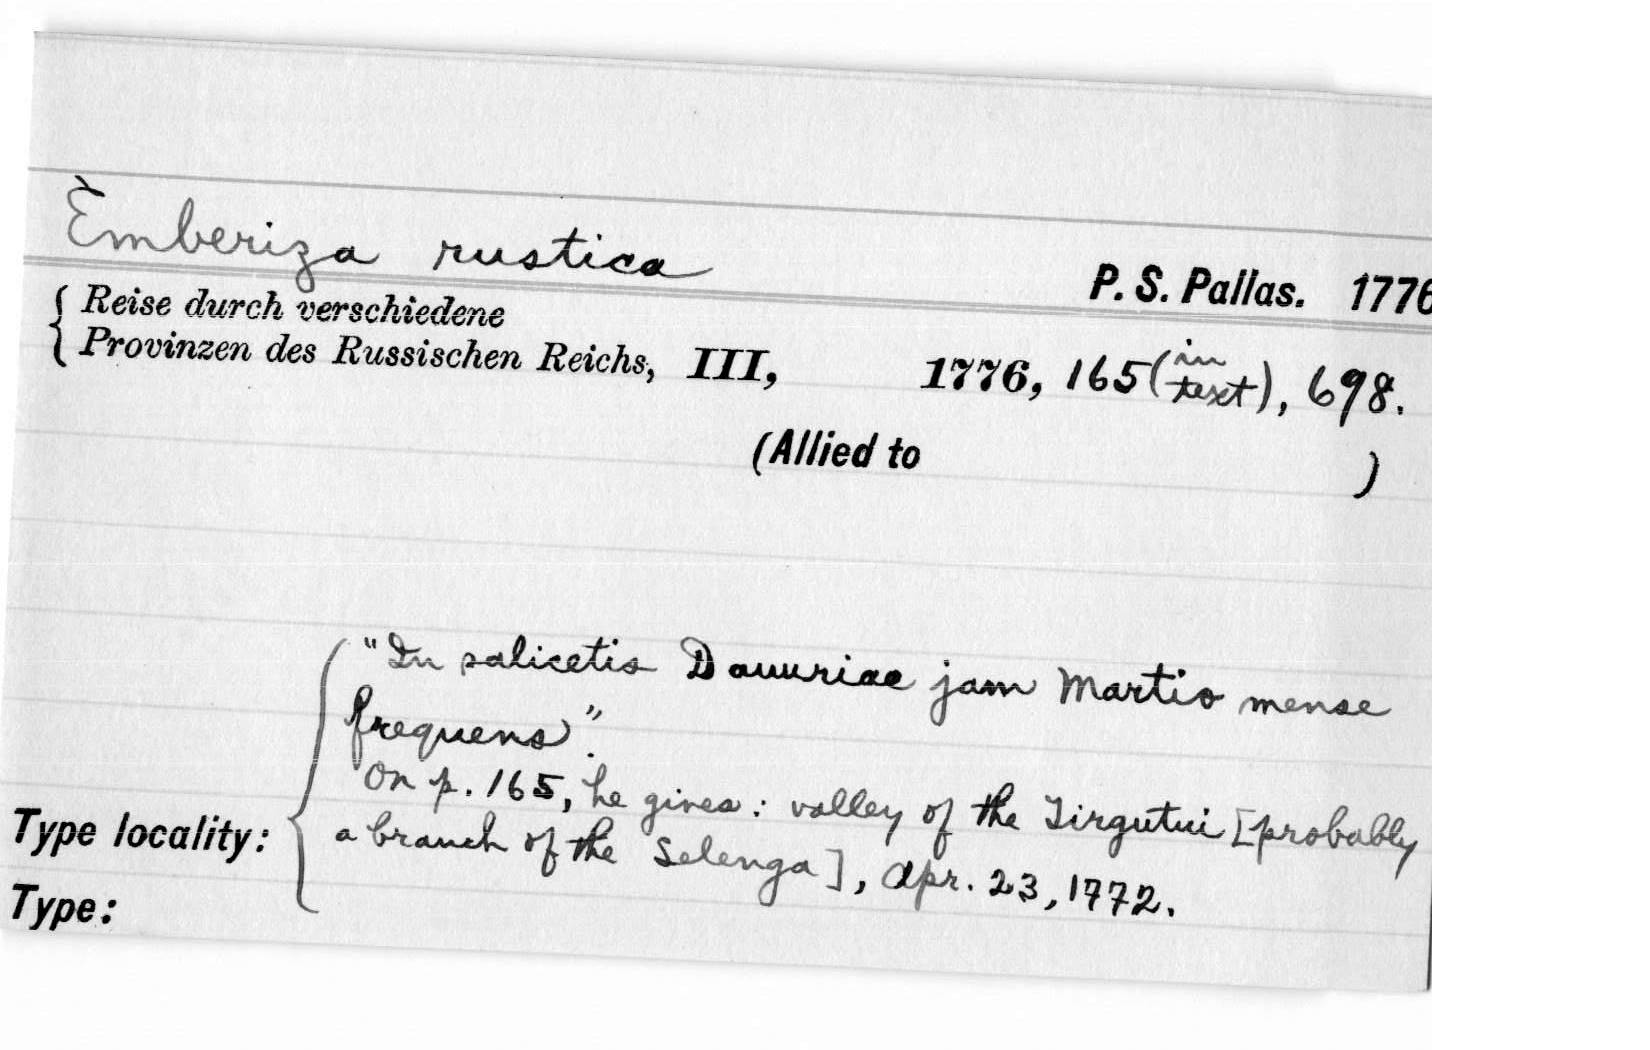 Emberiza rustica
P. S. Pallas. 1776
{ Reise durch verschiedene
Provinzen des Russischen Reichs, III, 1776, 165 (in text), 698.
(Allied to )
"In salicetis Dauuriae jam Martio mense
frequens".
On p. 165, he gives: valley of the Tirgutui [probably
a branch of the Selenga], Apr. 23, 1772.
Type locality:
Type: